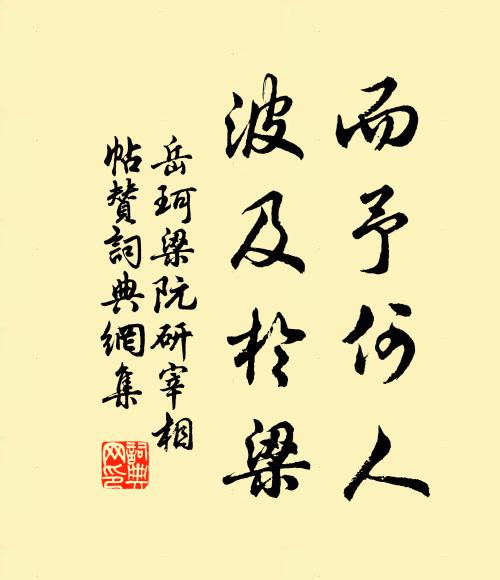 而予何人
波及於梁
岳珂梁阮研宰相
帖贊詞典網集
詞典
网印